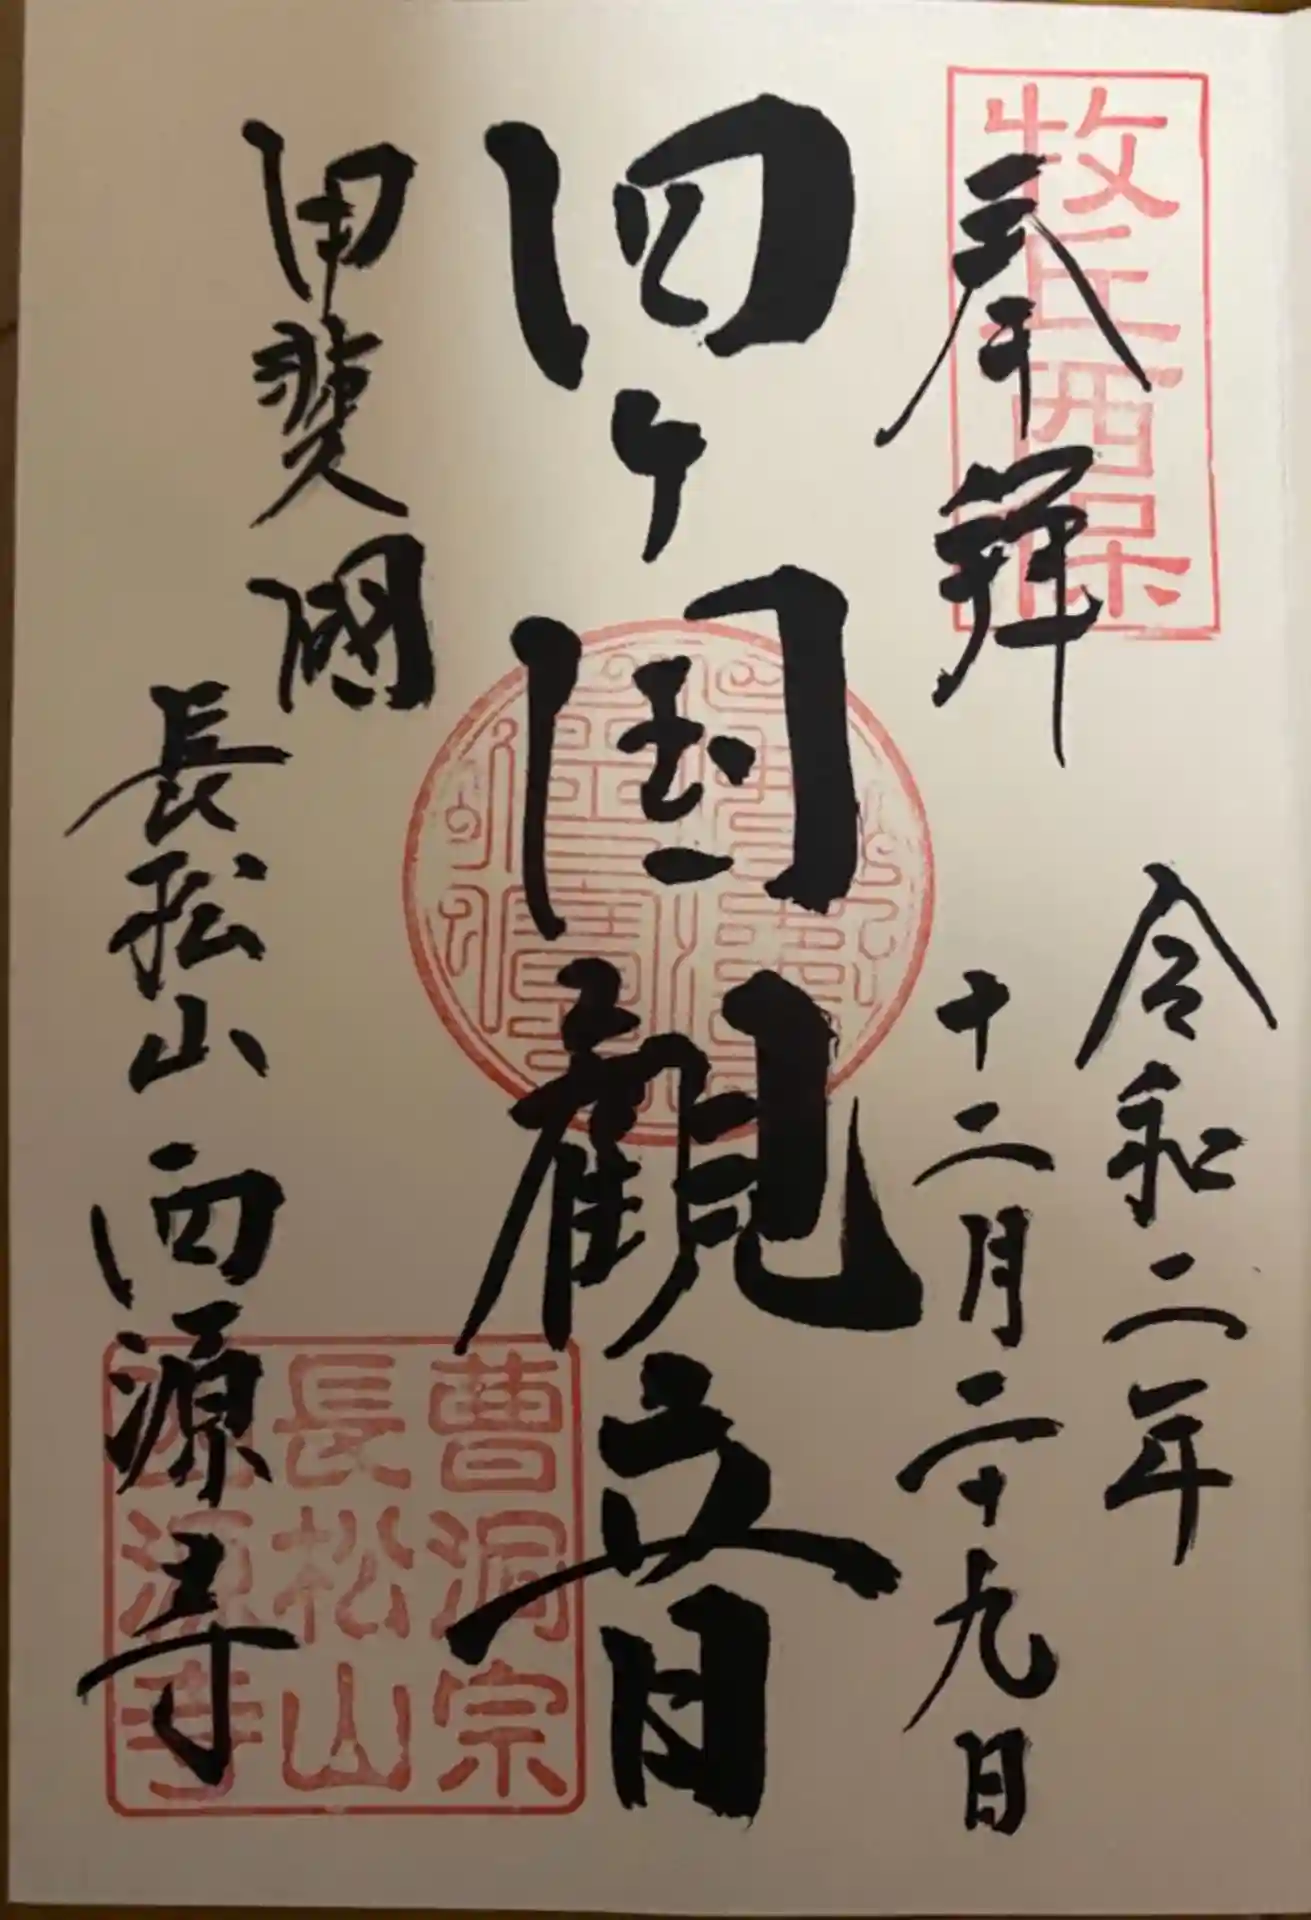 牧丘西保
奉拝
令和二年
十二月二十九日
四ヶ国観音
甲斐國
長松山西源寺
曹洞宗
長松山
西源寺